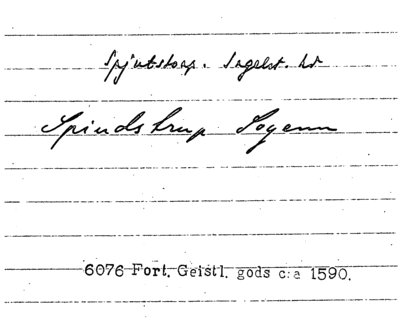 Spjutstorp. Ingelst. hd
Spindstrup Sogenn
6076 Fort. Geistl. gods c:a 1590.